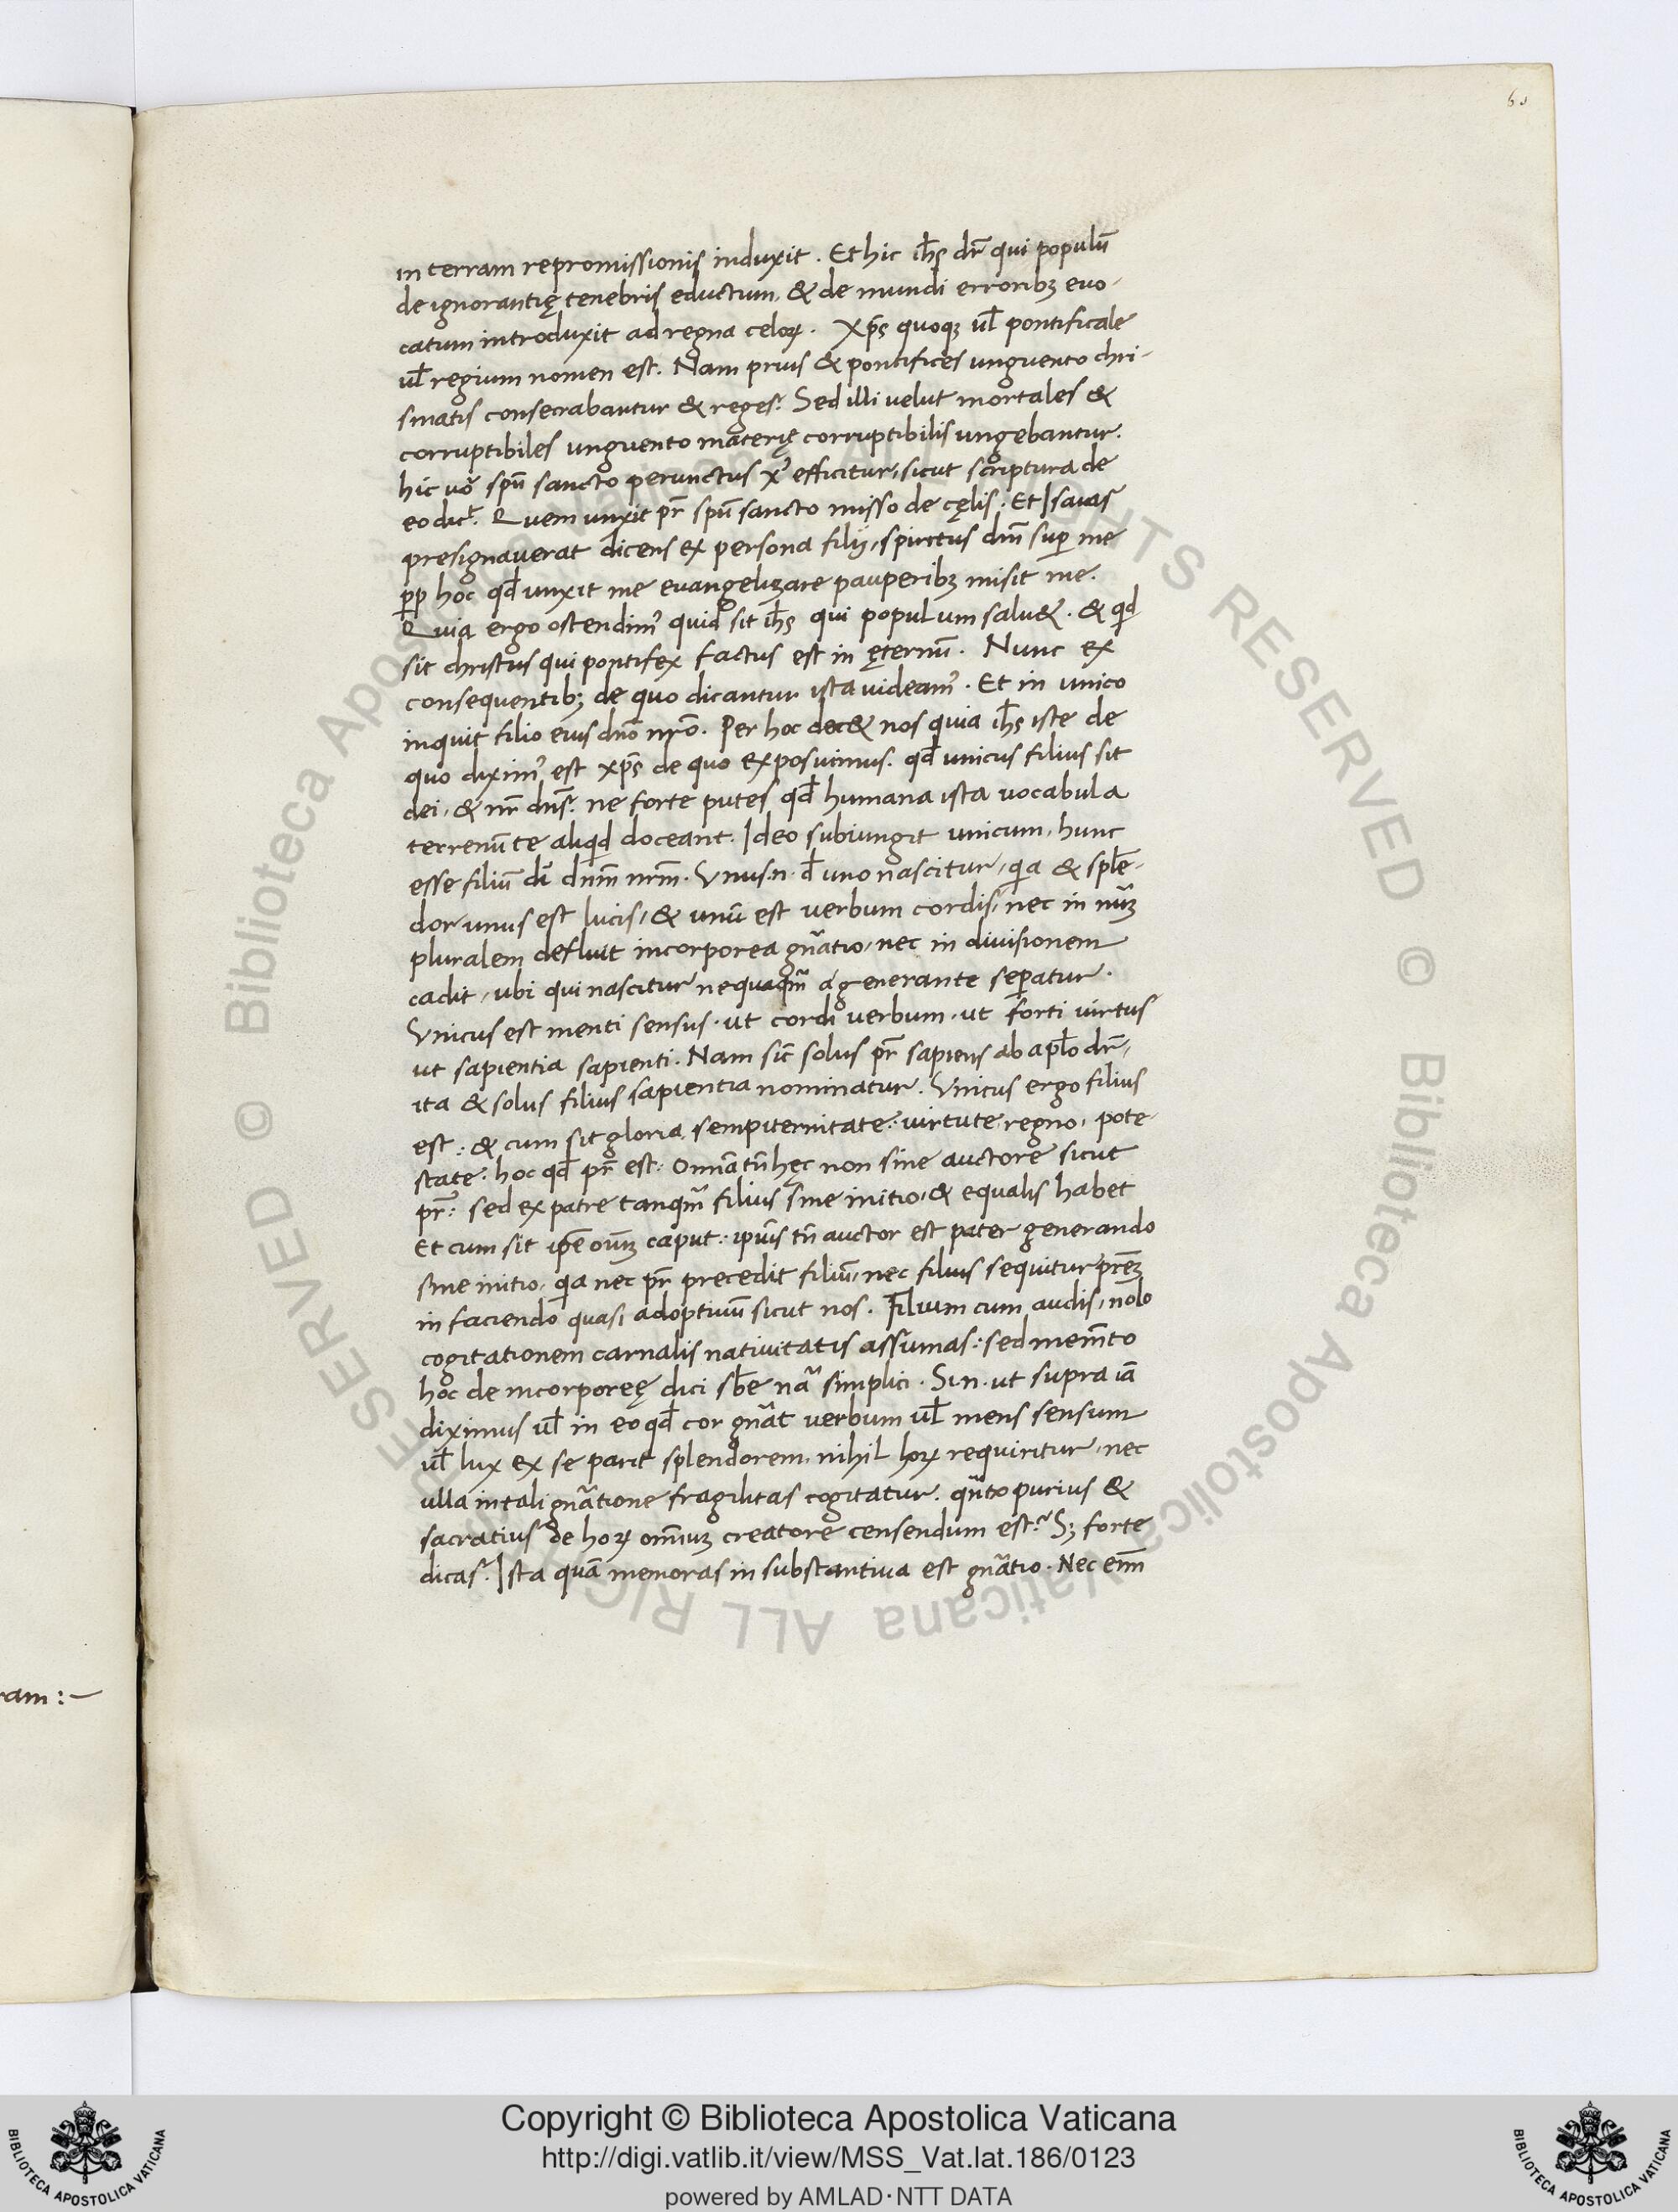 60
in terram repromissionis induxit. Et hic ih̄s dr̄ qui populū
de ignorantię tenebris eductum, & de mundi erroribꝫ euo-
catum introduxit ad regna celoꝝ. Xp̄s quoqꝫ ul̄ pontificale
ul̄ regium nomen est. Nam prius & pontifices unguento chri-
smatis consecrabantur & reges. Sed illi uelut mortales &
corruptibiles unguento materię corruptibilis ungebantur.
hic uo᷑ spū sancto perunctus xꝰ efficitur, sicut scriptura de
eo dict̄. Quem unxit pr̄ spū sancto misso de cęlis. Et Isaias
presignauerat dicens ex persona filij, spiritus dn̄i sup̄ me
ꝓp̄ hoc qd̄ unxit me euangelizare pauperibꝫ misit me.
Quia ergo ostendimꝰ quid sit ih̄s qui populum salu&. & qd̄
sit christus qui pontifex factus est in ęternū. Nunc ex
consequentibꝫ de quo dicantur ista uideamꝰ. Et in unico
inquit filio eius dn̄o nr̄o. Per hoc doc& nos quia ih̄s iste de
quo diximꝰ est xp̄s de quo exposuimus. qd̄ unicus filius sit
dei, & nr̄ dn̄s. ne forte putes qd̄ humana ista uocabula
terrenū te aliqd̄ doceant. Ideo subiungit unicum, hunc
esse filiū dī dn̄m nr̄m. Vnus .n. d̄ uno nascitur, qa & splē-
dor unus est lucis, & unū est uerbum cordis, nec in nūꝫ
pluralem defluit incorporea gn̄atio, nec in diuisionem
cadit, ubi qui nascitur nequaqm̄ a generante sep̄atur.
Vnicus est menti sensus. ut cordi uerbum. ut forti uirtus
ut sapientia sapienti. Nam sic̄ solus pr̄ sapiens ab apl̄o dr̄,
ita & solus filius sapientia nominatur. Vnicus ergo filius
est: & cum sit gloria, sempiternitate: uirtute, regno, pote-
state: hoc qd̄ pr̄ est: omnīa tn̄ hęc non sine auctore sicut
pr̄: sed ex patre tanqm̄ filius sine initio, & equalis habet
Et cum sit ip̄e oīuꝫ caput: ipsiꝰ tn̄ auctor est pater generando
sine initio, qa nec pr̄ precedit filiū, nec filius sequitur pr̄eꝫ
in faciendo quasi adoptiuū sicut nos. Filium cum audis, nolo
cogitationem carnalis natiuitatis assumas: sed mem̄to
hoc de incorporeę dici sb̄e nā simplici. Si .n. ut supra iā
diximus ul̄ in eo qd̄ cor gn̄at uerbum ul̄ mens sensum
ul̄ lux ex se parit splendorem, nihil hoꝝ requiritur, nec
ulla in tali gn̄atione fragilitas cogitatur. qn̄to purius &
sacratius de hoꝝ om̄iuꝫ creatore censendum est? Sꝫ forte
dicas. Ista quā memoras in substantiua est gn̄atio. Nec enī
ram:—
Copyright © Biblioteca Apostolica Vaticana
http://digi.vatlib.it/view/MSS_Vat.lat.186/0123
powered by AMLAD·NTT DATA